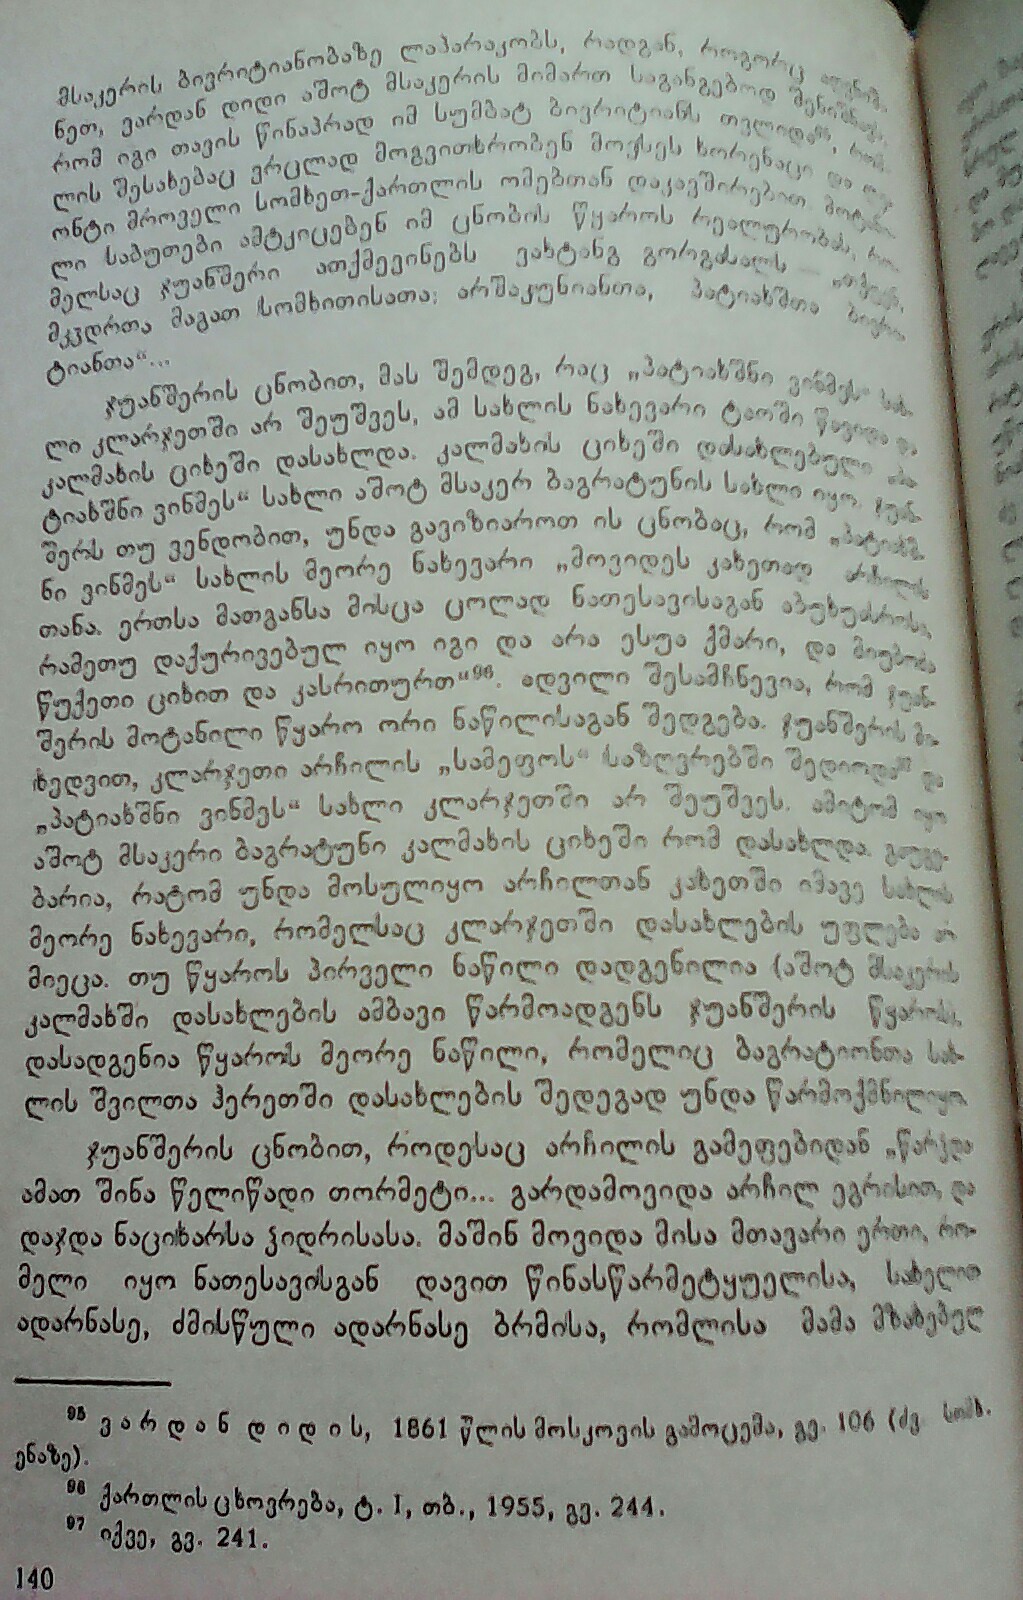 მსაკერის ბივრიტიანობაზე ლაპარაკობს, რადგან, როგორც აღვნიშ-
ნეთ, ვარდან დიდი აშოტ მსაკერის მიმართ საგანგებოდ შენიშნავს,
რომ იგი თავის წინაპრად იმ სუმბატ ბივრიტიანს თვლიდა⁹⁵, რომ-
ლის შესახებაც ვრცლად მოგვითხრობენ მოვსეს ხორენაცი და ლე-
ონტი მროველი სომხეთ-ქართლის ომებთან დაკავშირებით. მოტანი-
ლი საბუთები ამტკიცებენ იმ ცნობის წყაროს რეალურობას, რო-
მელსაც ჯუანშერი ათქმევინებს ვახტანგ გორგასალს —
მკვდრთა მაგათ სომხითისათა: არშაკუნიანთა, პატიახშთა ბივრი-
ტიანთა“...
ჯუანშერის ცნობით, მას შემდეგ, რაც „პატიახშნი ვინმეს“ სახ-
ლი კლარჯეთში არ შეუშვეს, ამ სახლის ნახევარი ტაოში წავიდა და
კალმახის ციხეში დასახლდა. კალმახის ციხეში დასახლებული „პა-
ტიახშნი ვინმეს“ სახლი აშოტ მსაკერ ბაგრატუნის სახლი იყო. ჯუან-
შერს თუ ვენდობით, უნდა გავიზიაროთ ის ცნობაც, რომ „პატიახშ-
ნი ვინმეს“ სახლის მეორე ნახევარი „მოვიდეს კახეთად არჩილის
თანა. ერთსა მათგანსა მისცა ცოლად ნათესავისაგან აბუხუასროსა,
რამეთუ დაქურივებულ იყო იგი და არა ესუა ქმარი, და მიუბოძა
წუქეთი ციხით და კასრითურთ“⁹⁶. ადვილი შესამჩნევია, რომ ჯუან-
შერის მოტანილი წყარო ორი ნაწილისაგან შედგება. ჯუანშერის მი-
ხედვით, კლარჯეთი არჩილის „სამეფოს“ საზღვრებში შედიოდა⁹⁷ და
„პატიახშნი ვინმეს“ სახლი კლარჯეთში არ შეუშვეს. ამიტომ იყო
აშოტ მსაკერი ბაგრატუნი კალმახის ციხეში რომ დასახლდა. გაუგე-
ბარია, რატომ უნდა მოსულიყო არჩილთან კახეთში იმავე სახლის
მეორე ნახევარი, რომელსაც კლარჯეთში დასახლების უფლება არ
მიეცა. თუ წყაროს პირველი ნაწილი დადგენილია (აშოტ მსაკერის
კალმახში დასახლების ამბავი წარმოადგენს ჯუანშერის წყაროს),
დასადგენია წყაროს მეორე ნაწილი, რომელიც ბაგრატიონთა სახ-
ლის შვილთა ჰერეთში დასახლების შედეგად უნდა წარმოქმნილიყო.
ჯუანშერის ცნობით, როდესაც არჩილის გამეფებიდან „წარჴდა
ამათ შინა წელიწადი თორმეტი... გარდამოვიდა არჩილ ეგრისით, და
დაჯდა ნაციხარსა ჴიდრისასა. მაშინ მოვიდა მისა მთავარი ერთი, რო-
მელი იყო ნათესავისგან დავით წინასწარმეტყუელისა, სახელით
ადარნასე, ძმისწული ადარნასე ბრმისა, რომლისა მამა მზახებულ
⁹⁵ ვარდან დიდის, 1861 წლის მოსკოვის გამოცემა, გვ. 106 (ძვ. სომხ.
ენაზე).
⁹⁶ ქართლის ცხოვრება, ტ. I, თბ., 1955, გვ. 244.
⁹⁷ იქვე, გვ. 241.
140